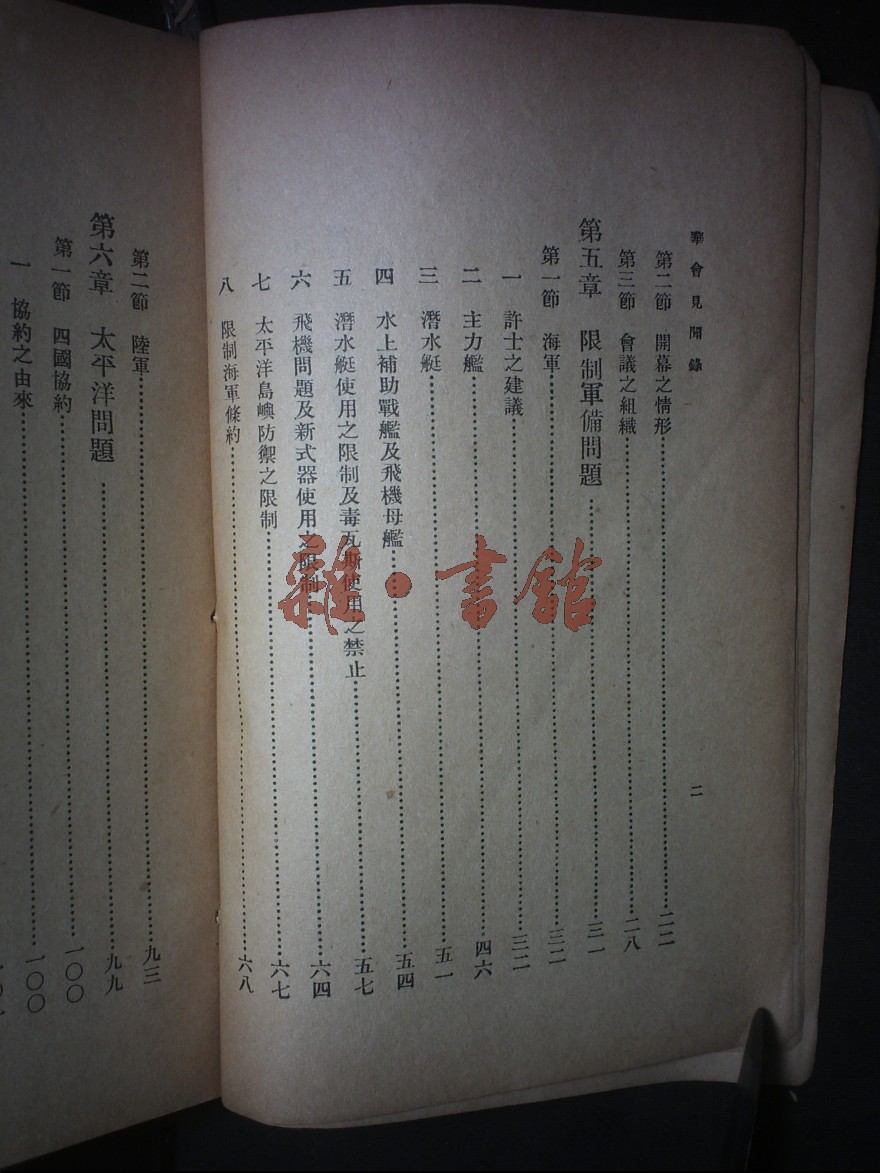 華會見聞錄
二
第二節 開幕之情形 二二
第三節 會議之組織 二八
第五章 限制軍備問題 三一
第一節 海軍 三二
一 許士之建議 三二
二 主力艦 四六
三 潛水艇 五一
四 水上補助戰艦及飛機母艦 五四
五 潛水艇使用之限制及毒瓦斯使用之禁止 五七
六 飛機問題及新式器使用之限制 六四
七 太平洋島嶼防禦之限制 六七
八 限制海軍條約 六八
第二節 陸軍 九三
第六章 太平洋問題 九九
第一節 四國協約 一〇〇
一 協約之由來 一〇〇
雜·書館